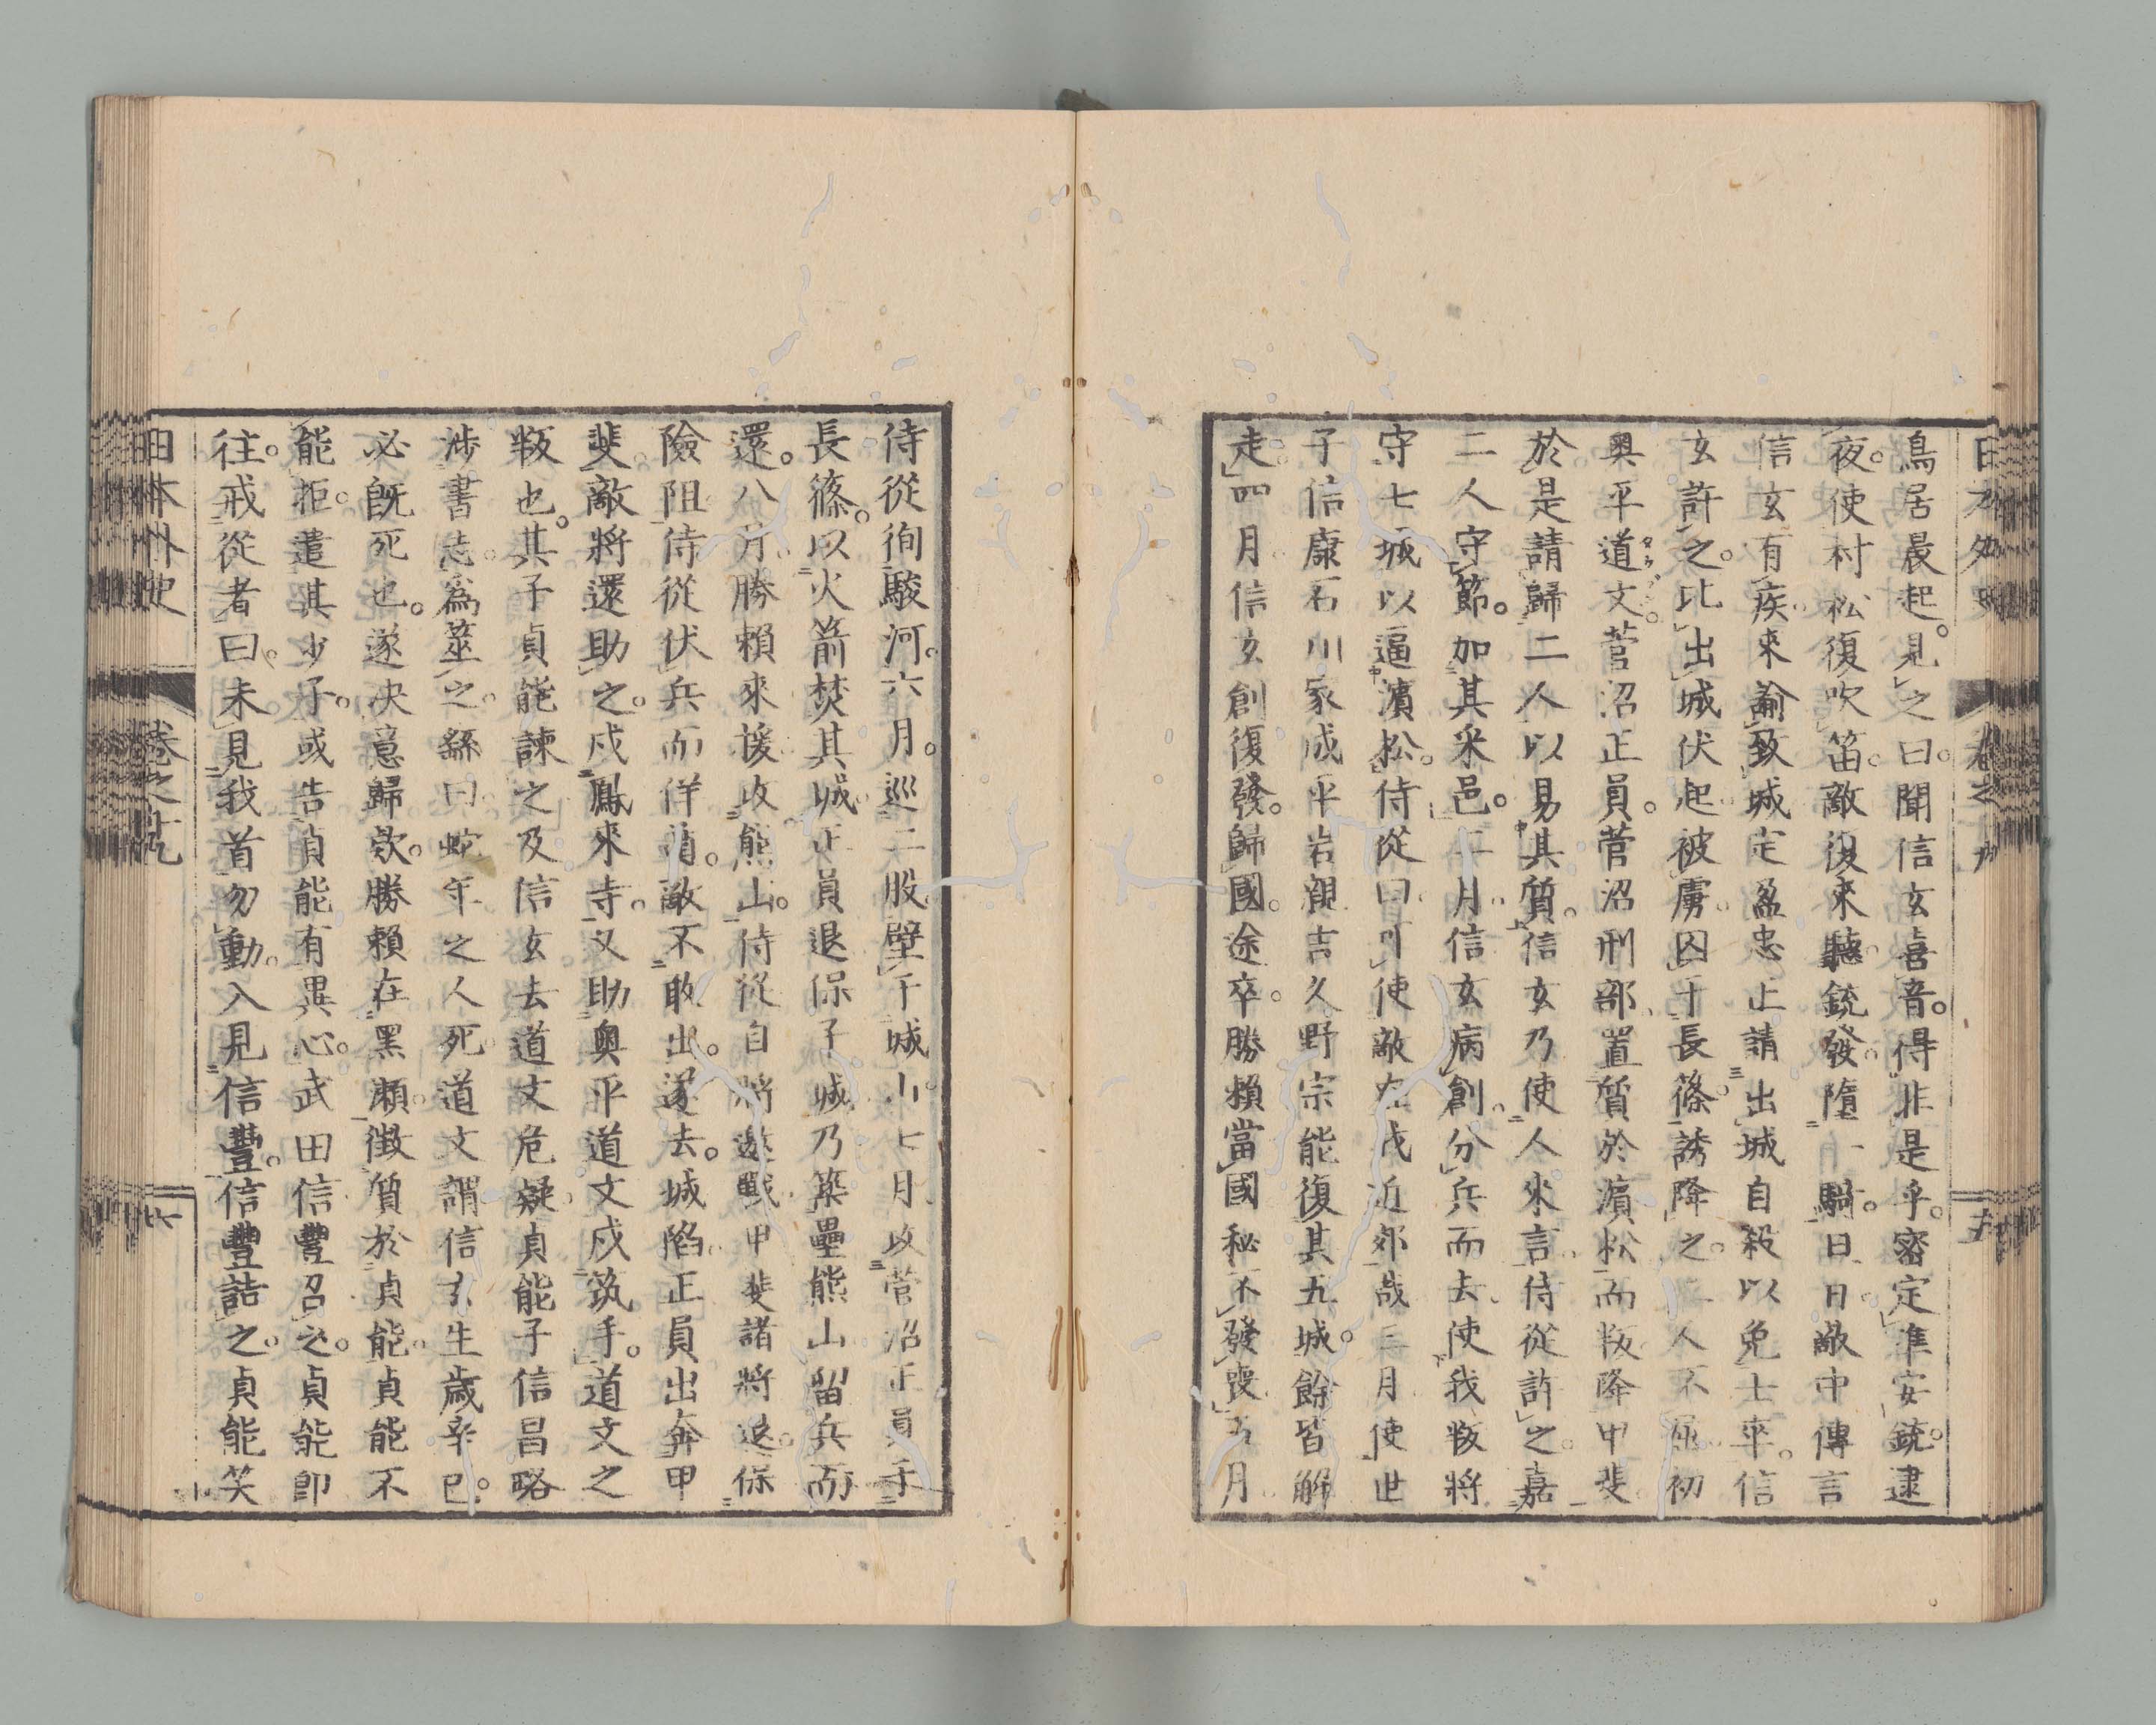 鳥居晨起。見之。曰聞信玄喜音。得非是乎。密定準安銃。逮
夜。使村松復吹笛。敵復來聽。銃發。墮一騎。曰日敵中傳言
信玄有疾。來諭致城定盈忠正請出城自殺以免士卒。信
玄許之。比出城伏起被虜。囚于長篠。誘降之。二人不屈初
奧平道文。菅沼正員。菅沼刑部置質於濱松而叛降甲斐
於是請歸二人以易其質。信玄乃使人來言。侍從許之。嘉
二人守節。加其采邑。二月。信玄病創。分兵而去。使我叛將
守七城以逼濱松。侍從曰。可使敵在我近郊哉三月使世
子信康石川家成平岩親吉久野宗能復其五城。餘皆解
走。四月信玄創復發。歸國。途卒。勝賴當國秘不發喪。五月
侍從徇駿河。六月。巡二股壁于城山七月攻菅沼正員于
長篠。以火箭焚其城。正員退保子城乃築壘熊山留兵而
還。八月勝賴來援攻熊山。侍從自將邀戰甲斐諸將退。保
險阻侍從伏兵而佯遁。敵不敢出。遂去。城陷正員出奔甲
斐敵將還助之。戍鳳來寺。又助奧平道文戍筑手。道文之
叛也。其子貞能諫之及信玄去道文危疑貞能子信昌略
涉書志。爲筮之。繇曰蛇年之人死道文謂信玄生歲辛巳。
必旣死也。遂决意歸欵。勝賴在黑瀨。徵質於貞能。貞能不
能拒。遣其少子。或告貞能有異心。武田信豐召之。貞能卽
往。戒從者曰。未見我首勿動。入見信豐。信豐詰之。貞能笑
日本外史
卷之十九